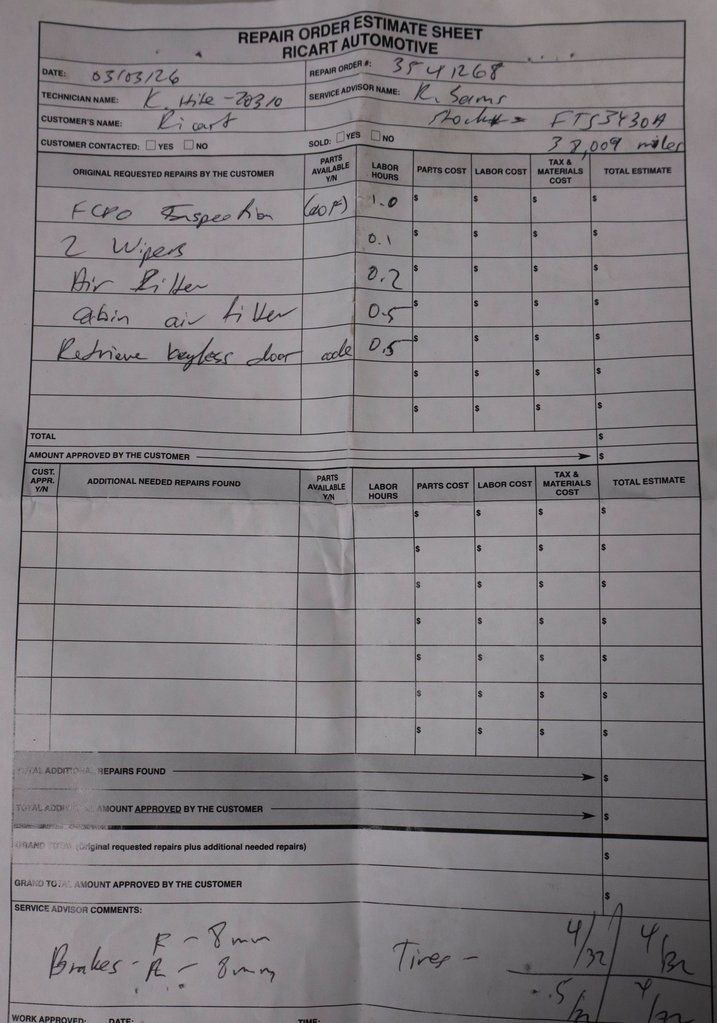 REPAIR ORDER ESTIMATE SHEET
RICART AUTOMOTIVE
DATE: 03/03/26 REPAIR ORDER #: 3541268
TECHNICIAN NAME: K. Hite - 20310 SERVICE ADVISOR NAME: R. Sams
CUSTOMER'S NAME: Ricart Stock # FTS3430A
CUSTOMER CONTACTED: YES NO SOLD: YES NO 38,009 miles
ORIGINAL REQUESTED REPAIRS BY THE CUSTOMER PARTS AVAILABLE Y/N LABOR HOURS PARTS COST LABOR COST TAX & MATERIALS COST TOTAL ESTIMATE
FCPO Inspection 1.0 $ $ $ $
2 Wipers 0.1 $ $ $ $
Air Filter 0.2 $ $ $ $
cabin air filter 0.5 $ $ $ $
Retrieve keyless door code 0.5 $ $ $ $
$ $ $ $
$ $ $ $
TOTAL $
AMOUNT APPROVED BY THE CUSTOMER $
CUST. APPR. Y/N ADDITIONAL NEEDED REPAIRS FOUND PARTS AVAILABLE Y/N LABOR HOURS PARTS COST LABOR COST TAX & MATERIALS COST TOTAL ESTIMATE
$ $ $ $
$ $ $ $
$ $ $ $
$ $ $ $
$ $ $ $
$ $ $ $
$ $ $ $
TOTAL ADDITIONAL REPAIRS FOUND $
TOTAL ADDITIONAL AMOUNT APPROVED BY THE CUSTOMER $
GRAND TOTAL (Original requested repairs plus additional needed repairs) $
GRAND TOTAL AMOUNT APPROVED BY THE CUSTOMER $
SERVICE ADVISOR COMMENTS:
F - 8mm 4/32 4/32
Brakes - R - 8mm Tires -
5 4
WORK APPROVED: DATE: TIME: